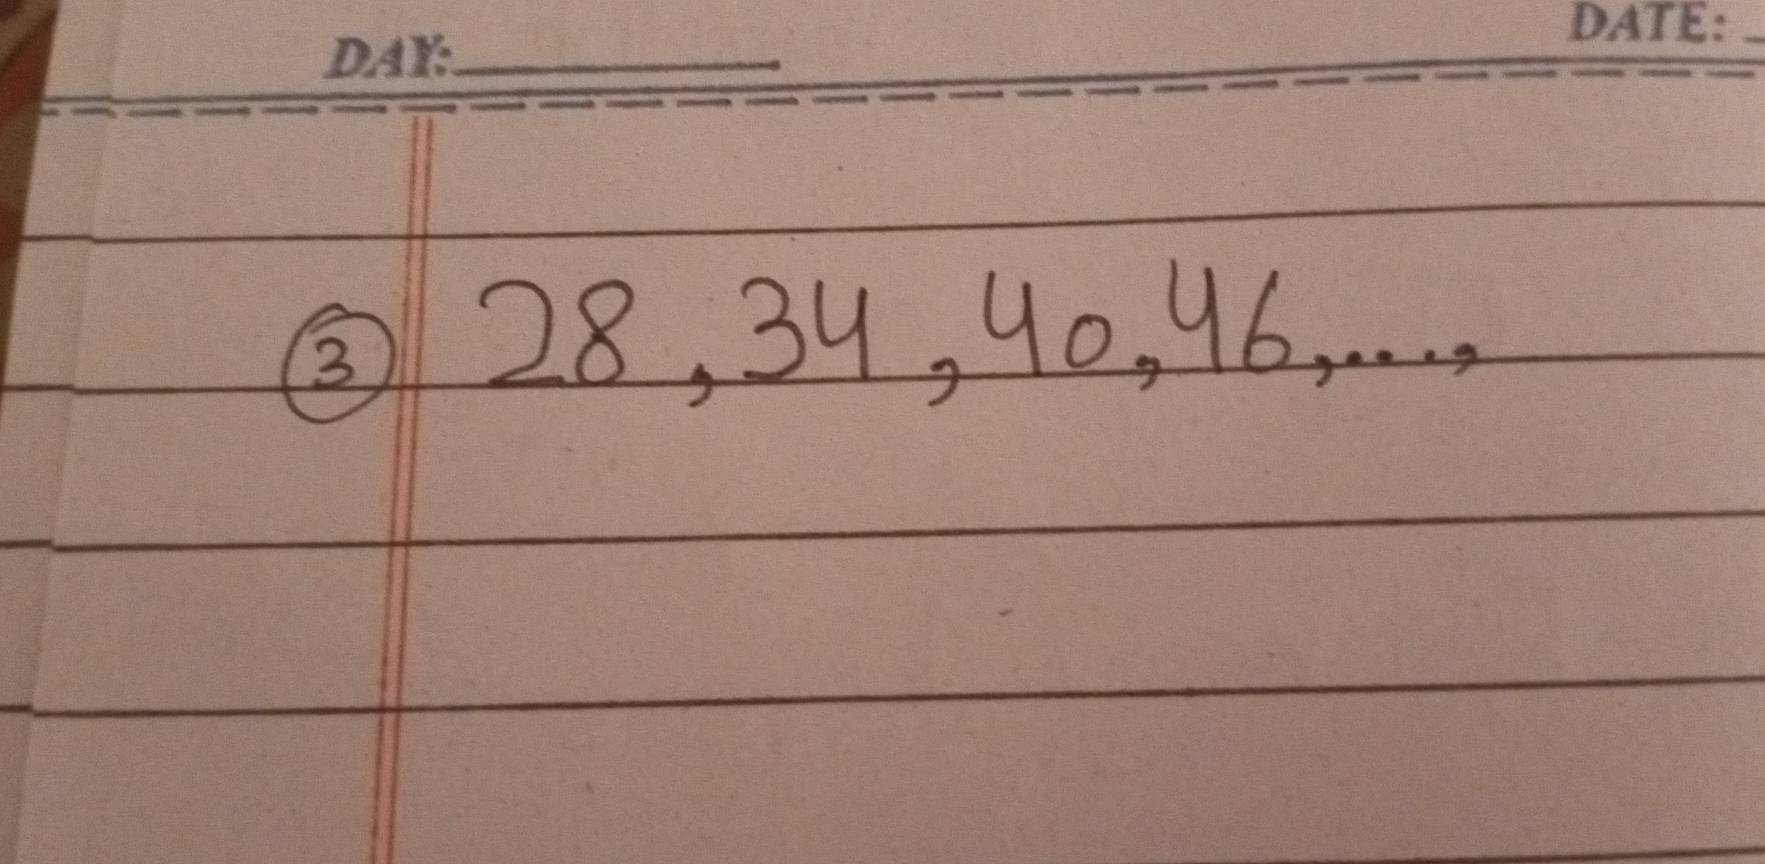 DAY: DATE:
③ 28, 34, 40, 46, ....,